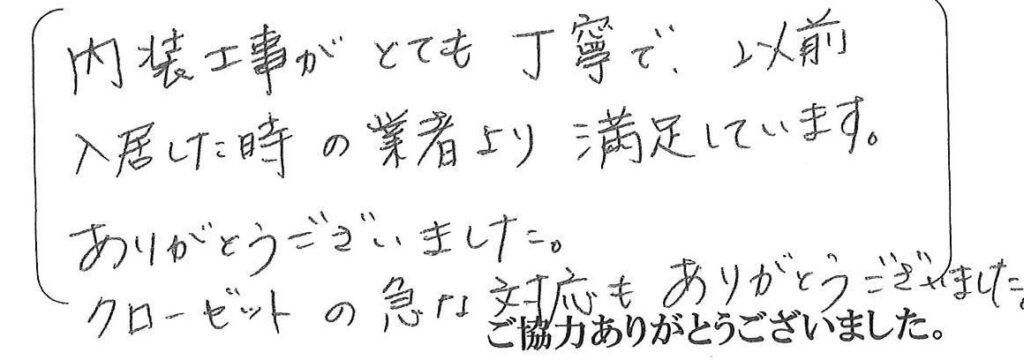 内装工事がとても丁寧で、以前
入居した時の業者より満足しています。
ありがとうございました。
クローゼットの急な対応もありがとうございました。
ご協力ありがとうございました。